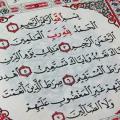 بِسْمِ اللَّهِ الرَّحْمَٰنِ الرَّحِيمِ
الْحَمْدُ لِلَّهِ رَبِّ الْعَالَمِينَ
الرَّحْمَٰنِ الرَّحِيمِ مَالِكِ يَوْمِ
الدِّينِ إِيَّاكَ نَعْبُدُ وَإِيَّاكَ نَسْتَعِينُ
اهْدِنَا الصِّرَاطَ الْمُسْتَقِيمَ صِرَاطَ الَّذِينَ
أَنْعَمْتَ عَلَيْهِمْ غَيْرِ الْمَغْضُوبِ عَلَيْهِمْ
وَلَا الضَّالِّينَ